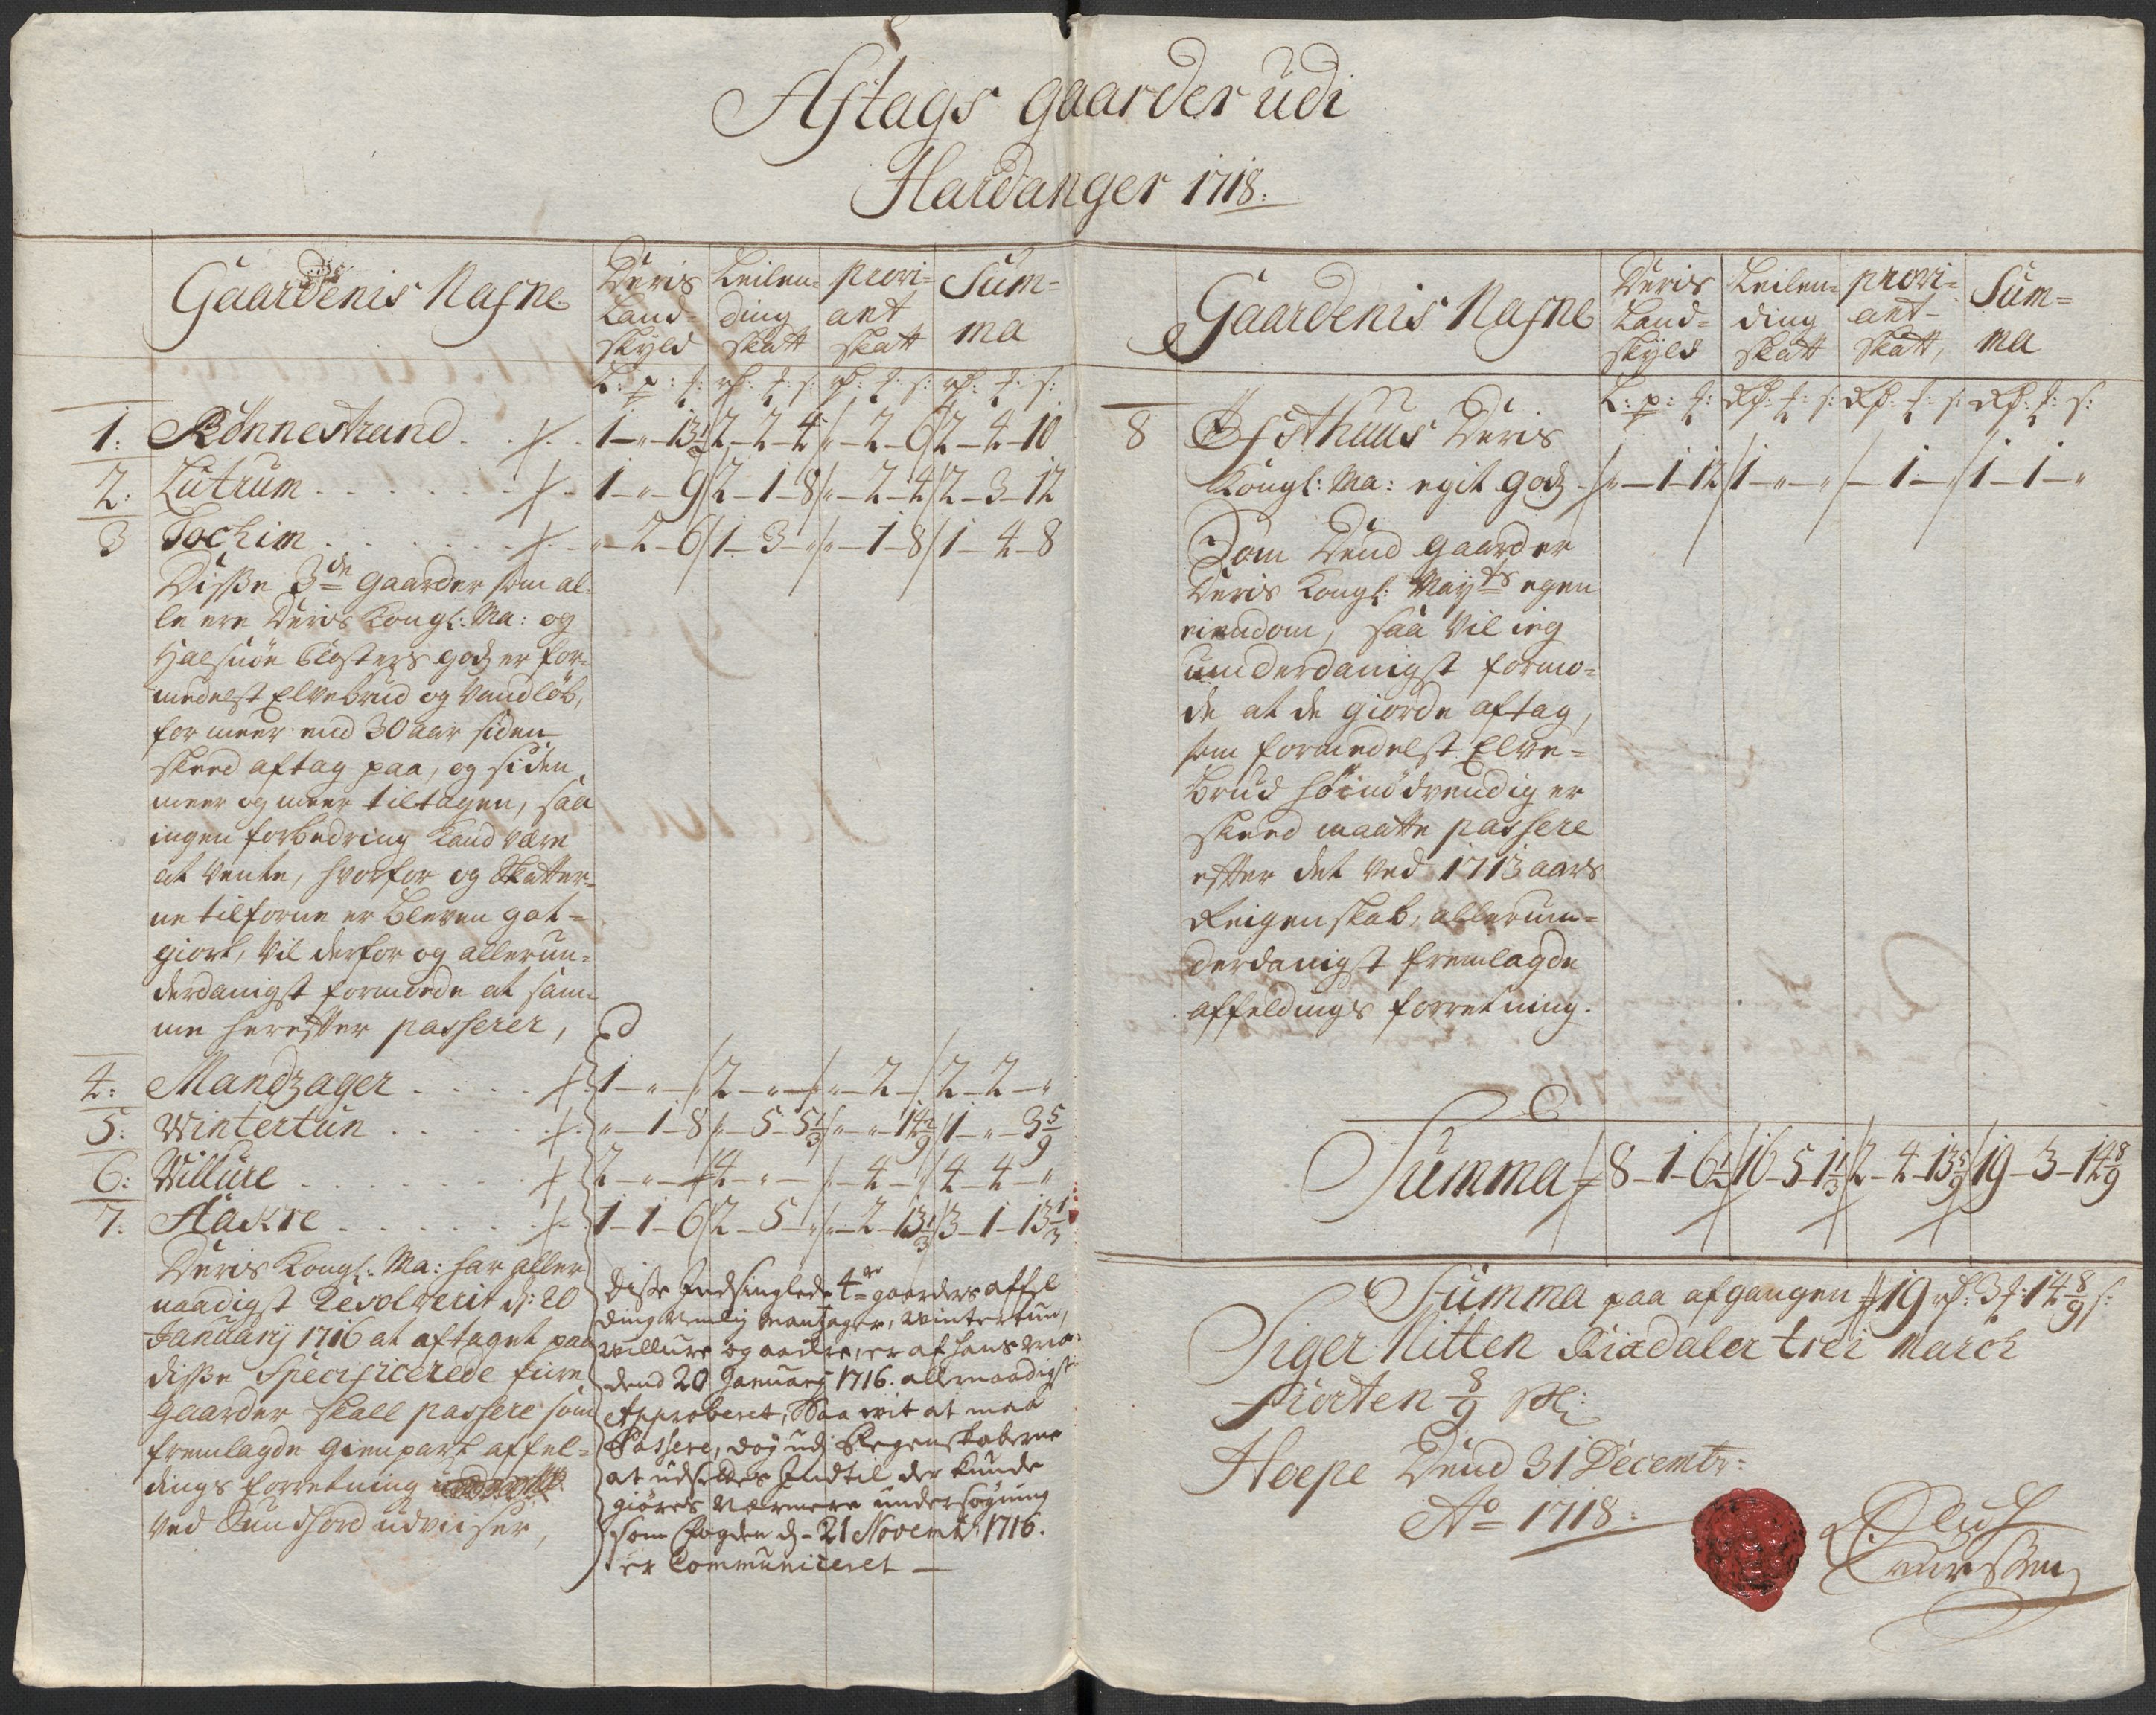 Aftags gaarder udi
Hardanger 1718:
Gaardenis Nafne
Deris Land= skyld
Leilen= ding skatt
provi= ant skatt
Sum= ma
L: p: f: rd: f: s: rd: f: s: rd: f: s:
1: Rönnestrand . . 1 - " - 13½ 2 - 2 - 4 " - 2 - 6 2 - 4 - 10
2: Lutrum . . . 1 - " - 9 2 - 1 - 8 " - 2 - 4 2 - 3 - 12
3 Tochim . . . " - 2 - 6 1 - 3 - " " - 1 - 8 1 - 4 - 8
Disse 3de gaarder som al-
le ere Deris Kongl: Ma: og
Halsnöe Closters godz er for-
medelst Elvebrud og Vandlöb,
for meer end 30 aar siden
skeed aftag paa, og siden
meer og meer tiltagen, saa
ingen forbedring kand være
at vente, hvorfor og Skatter-
ne tilforne er bleven got-
giort, vil derfor og allerun-
derdanigst formode at sam-
me herefter passerer,
4: Mandzager . . . 1 - " - " 2 - " - " " - 2 - " 2 - 2 - "
5: Wintertun . . . " - 1 - 8 " - 5 - 5⅓ " - " - 14 2/9 1 - " - 3 5/9
6: Villure . . . 2 - " - " 4 - " - " " - 4 - " 4 - 4 - "
7: Aackre . . . 1 - 1 - 6 2 - 5 - " " - 2 - 13⅓ 3 - 1 - 13⅓
Deris Kongl: Ma: har aller
naadigst Resolverit d: 20
January 1716 at aftaget paa
disse Specificerede fiire
gaarder skall passere som
fremlagde Gienpart affel-
dings forretning
ved Sundhord udviiser,
Disse Indsinglede 4re gaarders affel
ding nemlig Mantzager, Wintertun,
Willure og aackre, er af hans Ma:
dend 20 January 1716. allernaadigst
Approberet, Saa vit at maa
Passere, dog udj Regenskaberne
at udsettes Indtil der kunde
giöres nærmere undersögning
som Fogden d- 21 Novembr: 1716.
er Communiceret —
Gaardenis Nafne
Deris Land= skyld
Leilen= ding skatt
provi= ant- skatt,
Sum= ma
L: p: f: Rd: f: s: Rd: f: s: Rd: f: s:
8 Öfsthuus Deris
Kongl: Ma: egit godz - " - 1 - 12 1 - " - " " - 1 - " 1 - 1 - "
Som Dend gaard er
Deris Kongl: Mayts egen
eiendom, saa vil ieg
underdanigst formo=
de at de giorde aftag,
som formedelst Elve=
brud höinödvendig er
skeed maatte passere
efter det ved 1713 aars
Reigenskab, allerun=
derdanigst fremlagde
affeldings forretning.
Summa 8 - 1 - 6½ 16 - 5 - 1⅓ 2 - 4 - 13 5/9 19 - 3 - 14 8/9
Summa paa afgangen 19 rd: 3 f: 14 8/9 s:
Siger Nitten Rixdaler trei March
Fiorten 8/9 sk:
Hoepe Dend 31 Decembr:
Ao 1718: